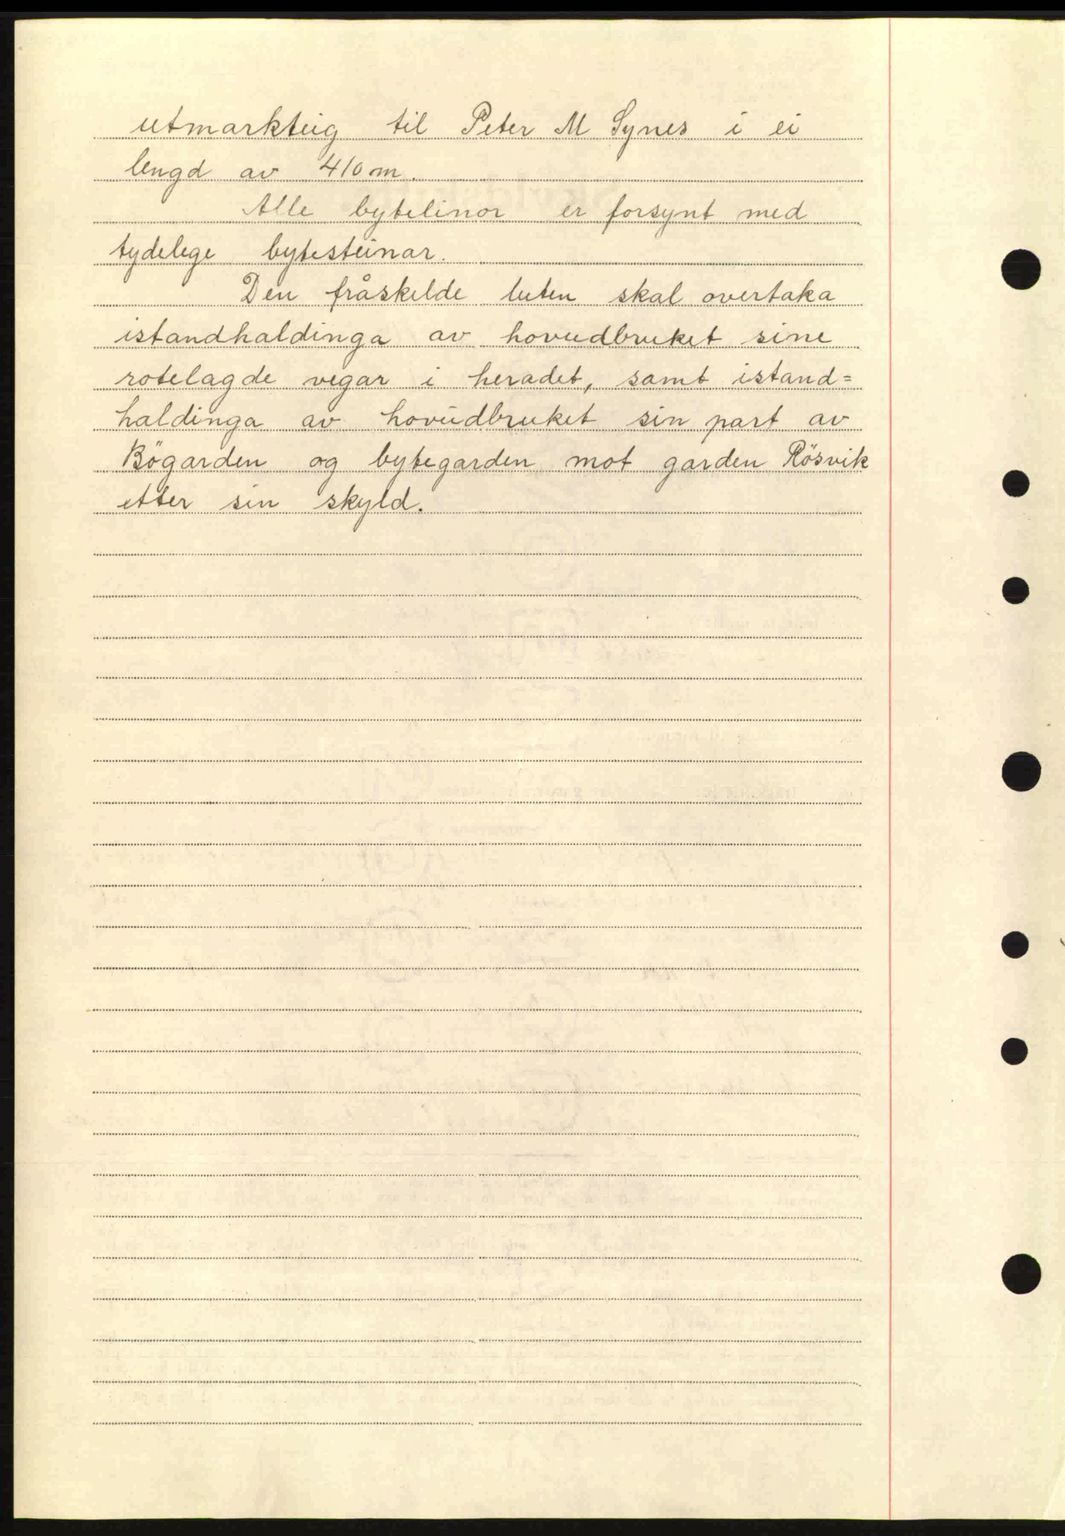 utmarkteig til Peter M Synes i ei
lengd av 410 m.
Alle bytelinor er forsynt med
tydelege bytesteinar.
Den fråskilde luten skal overtaka
istandhaldinga av hovudbruket sine
rotelagde vegar i heradet, samt istand=
haldinga av hovudbruket sin part av
Bögarden og bytegarden mot garden Rösvik
etter sin skyld.